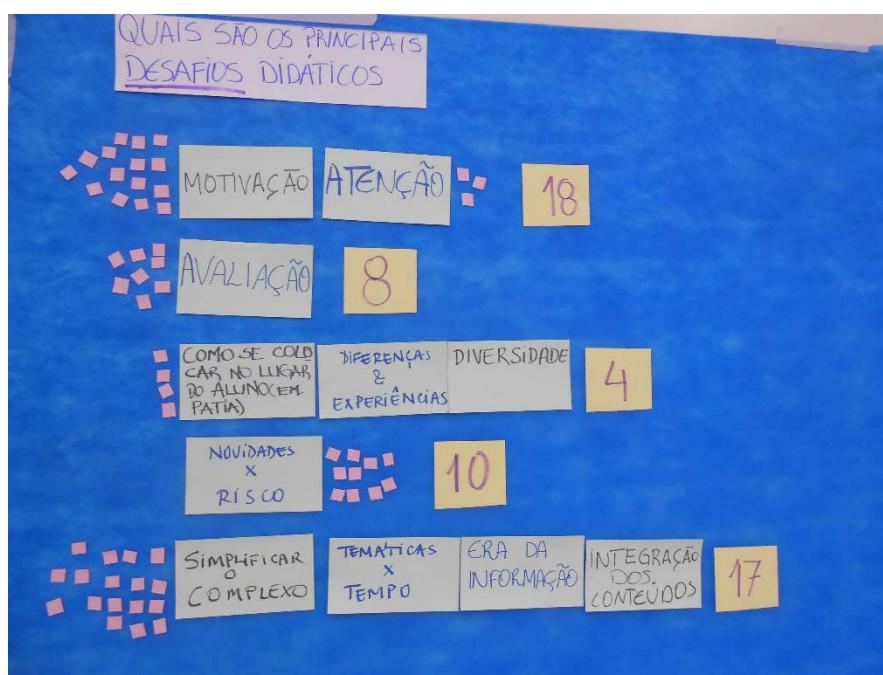 QUAIS SÃO OS PRINCIPAIS
DESAFIOS DIDÁTICOS
MOTIVAÇÃO
ATENÇÃO
18
AVALIAÇÃO
8
COMO SE COLO
CAR NO LUGAR
DO ALUNO (EM
PATIA)
DIFERENÇAS
&
EXPERIÊNCIAS
DIVERSIDADE
4
NOVIDADES
X
RISCO
10
SIMPLIFICAR
O
COMPLEXO
TEMÁTICAS
X
TEMPO
ERA DA
INFORMAÇÃO
INTEGRAÇÃO
DOS
CONTEÚDOS
17